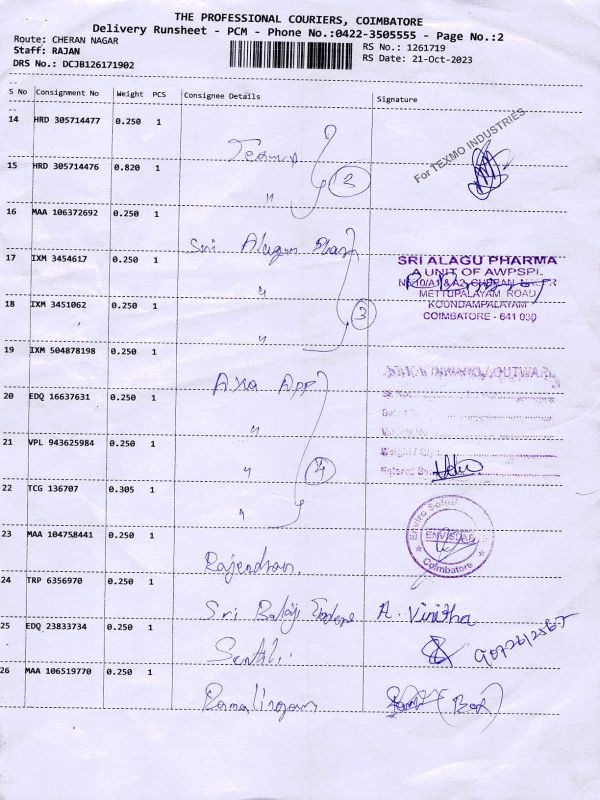 THE PROFESSIONAL COURIERS, COIMBATORE
Delivery Runsheet - PCM - Phone No.:0422-3505555 - Page No.:2
Route: CHERAN NAGAR
Staff: RAJAN
RS No.: 1261719
DRS No.: DCJB126171902
RS Date: 21-Oct-2023
S No Consignment No Weight PCS Consignee Details Signature
14 HRD 305714477 0.250 1
For TEXMO INDUSTRIES
15 HRD 305714476 0.820 1 " 2
16 MAA 106372692 0.250 1 Sri Alagu
17 IXM 3454617 0.250 1 "
SRI ALAGU PHARMA
A UNIT OF AWPSPL
NO.10/A1 & A2, CHERAN NAGAR
METTUPALAYAM ROAD
KOUNDAMPALAYAM
COIMBATORE - 641 030
18 IXM 3451062 0.250 1 " 3
19 IXM 504878198 0.250 1 Axa App
20 EDQ 16637631 0.250 1 "
21 VPL 943625984 0.250 1 " 4
22 TCG 136707 0.305 1 "
23 MAA 104758441 0.250 1 Rajendran.
Coimbatore
24 TRP 6356970 0.250 1 Sri Balaji A. Vinitha
25 EDQ 23833734 0.250 1
26 MAA 106519770 0.250 1 Ramalingam